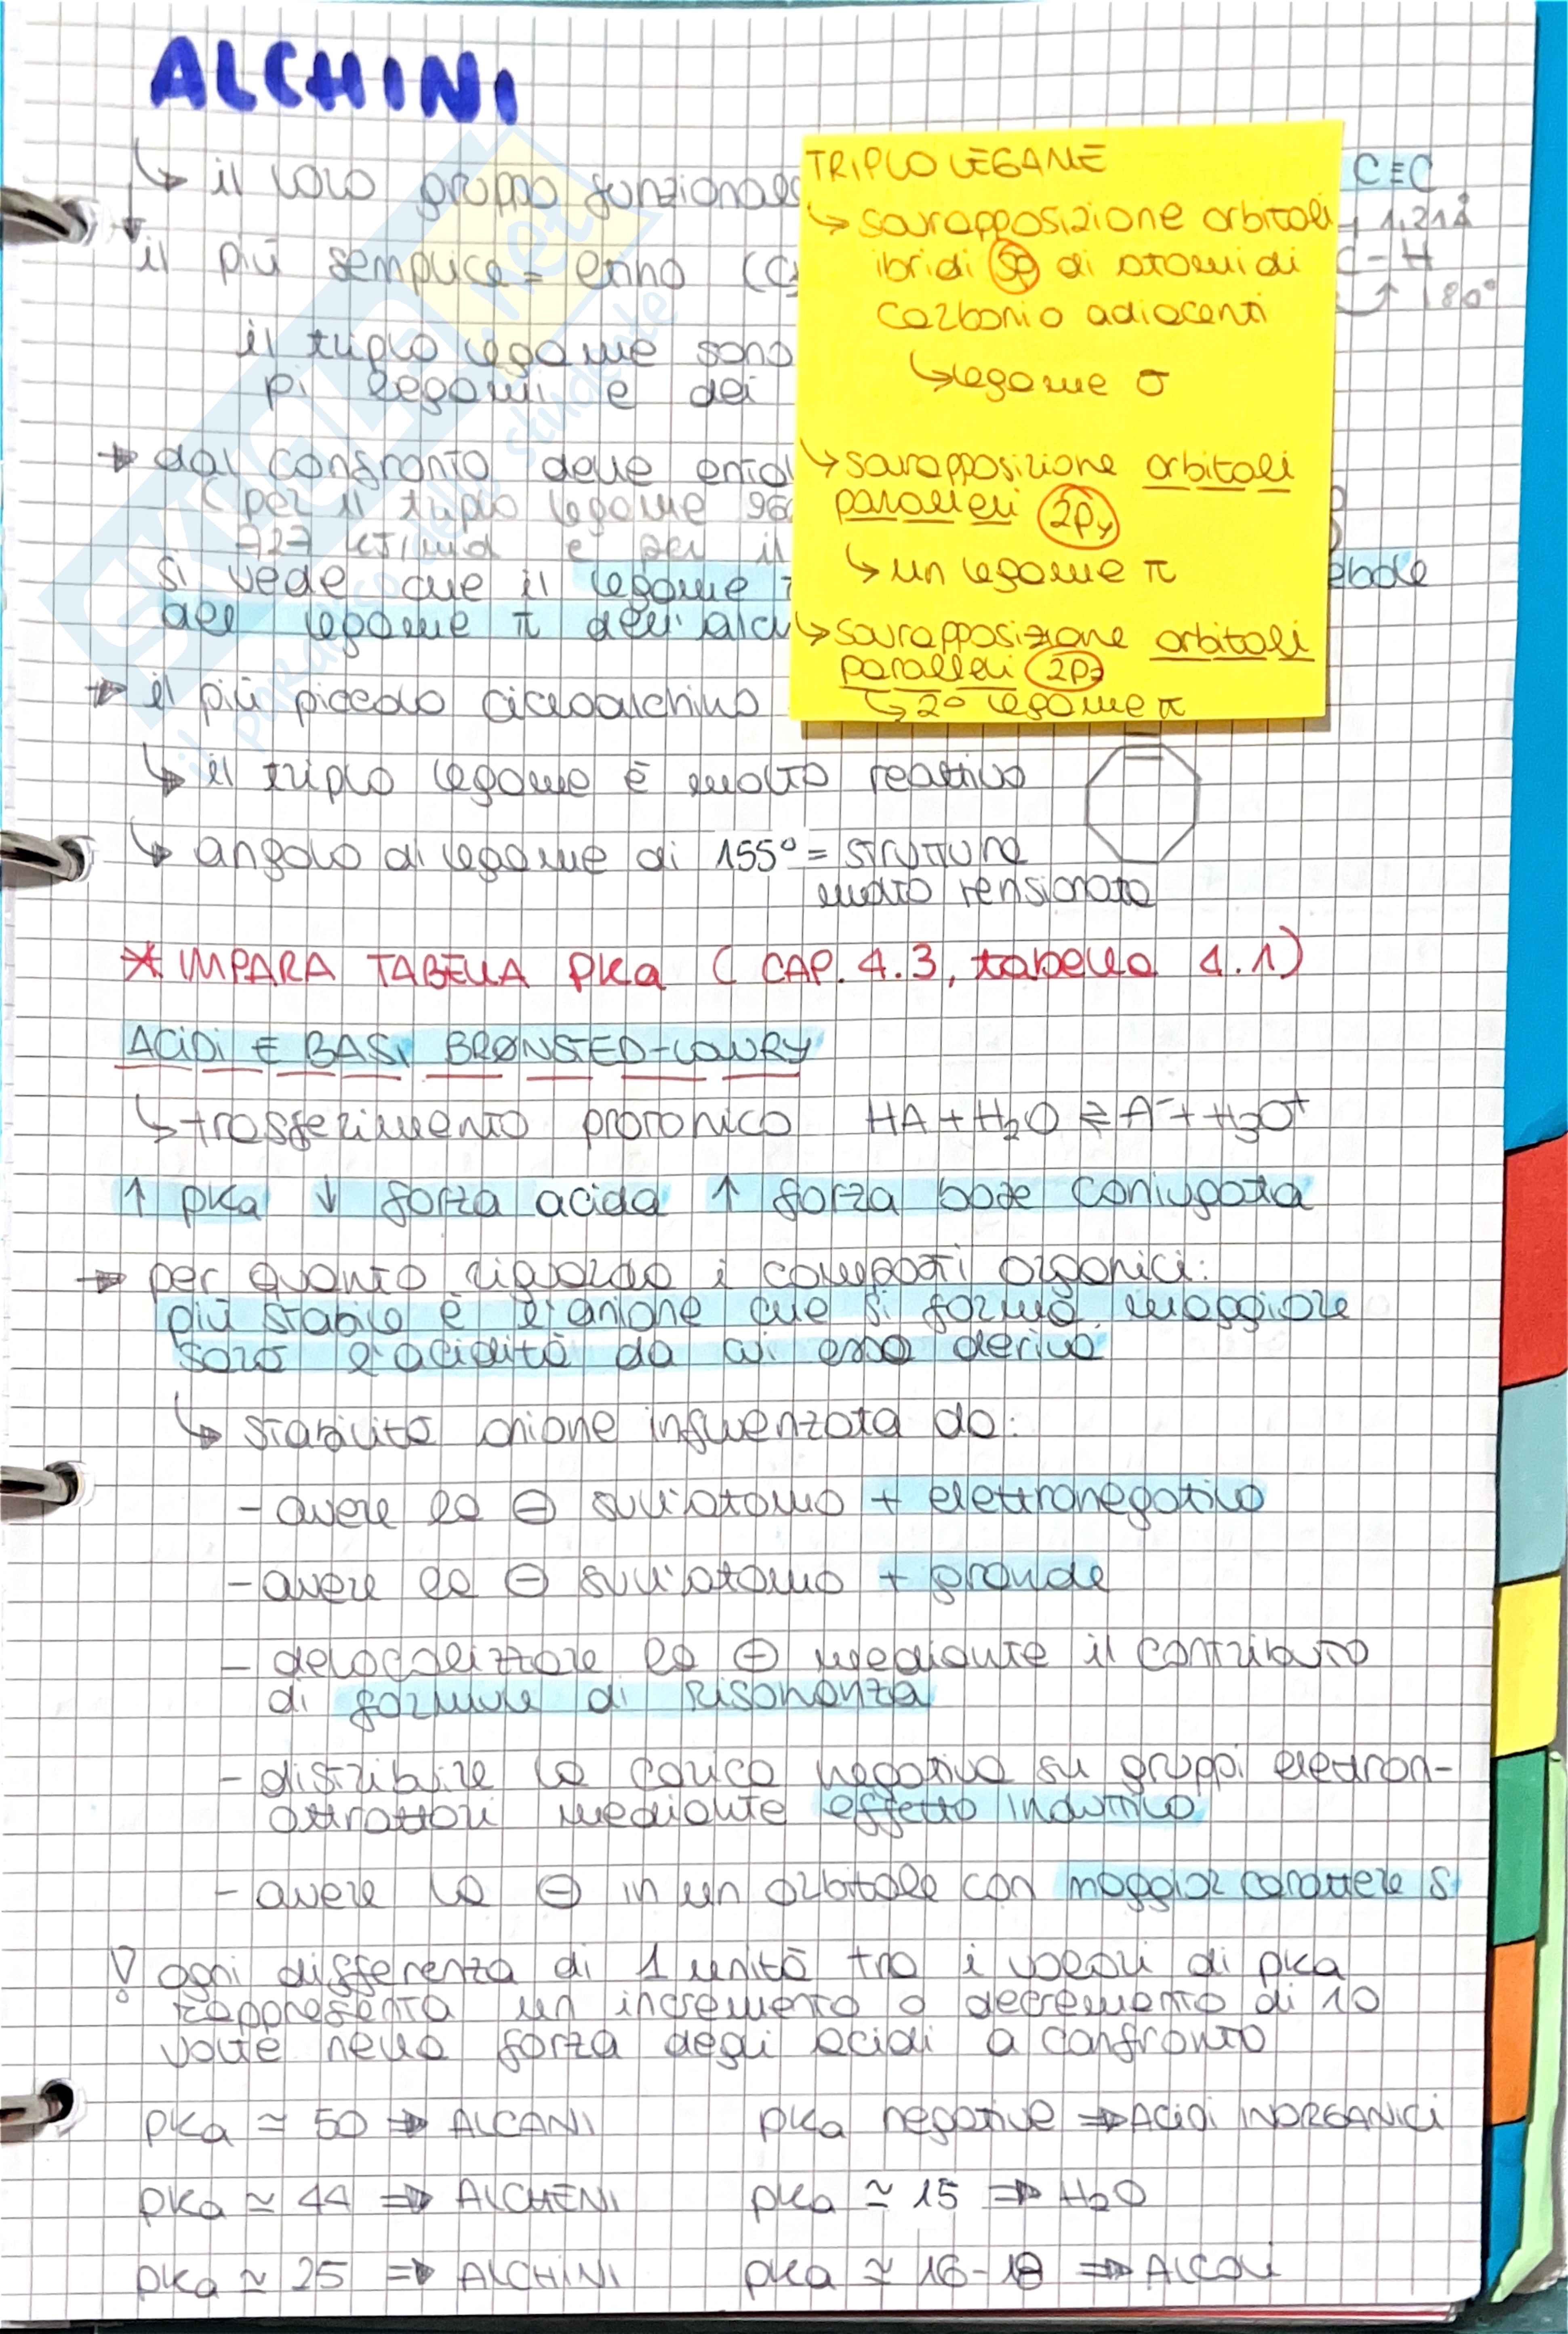 ALCHINI
↳ il loro gruppo funzionale
C≡C
1,21Å
il più semplice = etino (C
C-H
180°
il triplo legame sono
pi legami e dei
→ dal confronto delle ental
(per il triplo legame 96
727 kJ/mol e per il
si vede che il legame π
ebole
del legame π dell'alch
→ il più piccolo cicloalchino
↳ il triplo legame è molto reattivo
↳ angolo di legame di 155° = struttura
molto tensionata
TRIPLO LEGAME
↳ sovrapposizione orbitali
ibridi sp di atomi di
carbonio adiacenti
↳ legame σ
↳ sovrapposizione orbitali
paralleli 2py
↳ un legame π
↳ sovrapposizione orbitali
paralleli 2pz
↳ 2° legame π
* IMPARA TABELLA pKa (CAP. 4.3, tabella 4.1)
ACIDI E BASI BRØNSTED-LOWRY
↳ trasferimento protonico HA + H₂O ⇄ A⁻ + H₃O⁺
↑ pka ↓ forza acida ↑ forza base coniugata
→ per quanto riguarda i composti organici:
più stabile è l'anione che si forma, maggiore
sarà l'acidità da cui esso deriva
↳ stabilità anione influenzata da:
- avere la ⊖ sull'atomo + elettronegativo
- avere la ⊖ sull'atomo + grande
- delocalizzare la ⊖ mediante il contributo
di formule di risonanza
- distribuire la carica negativa su gruppi elettron-
attrattori mediante effetto induttivo
- avere la ⊖ in un orbitale con maggior carattere s
! ogni differenza di 1 unità tra i valori di pka
rappresenta un incremento o decremento di 10
volte nella forza degli acidi a confronto
pKa ≃ 50 ⇒ ALCANI
pka negative ⇒ ACIDI INORGANICI
pKa ≃ 44 ⇒ ALCHENI
pka ≃ 15 ⇒ H₂O
pKa ≃ 25 ⇒ ALCHINI
pka ≃ 16-18 ⇒ ALCOLI
SKUOLA.net
il paradiso dello studente